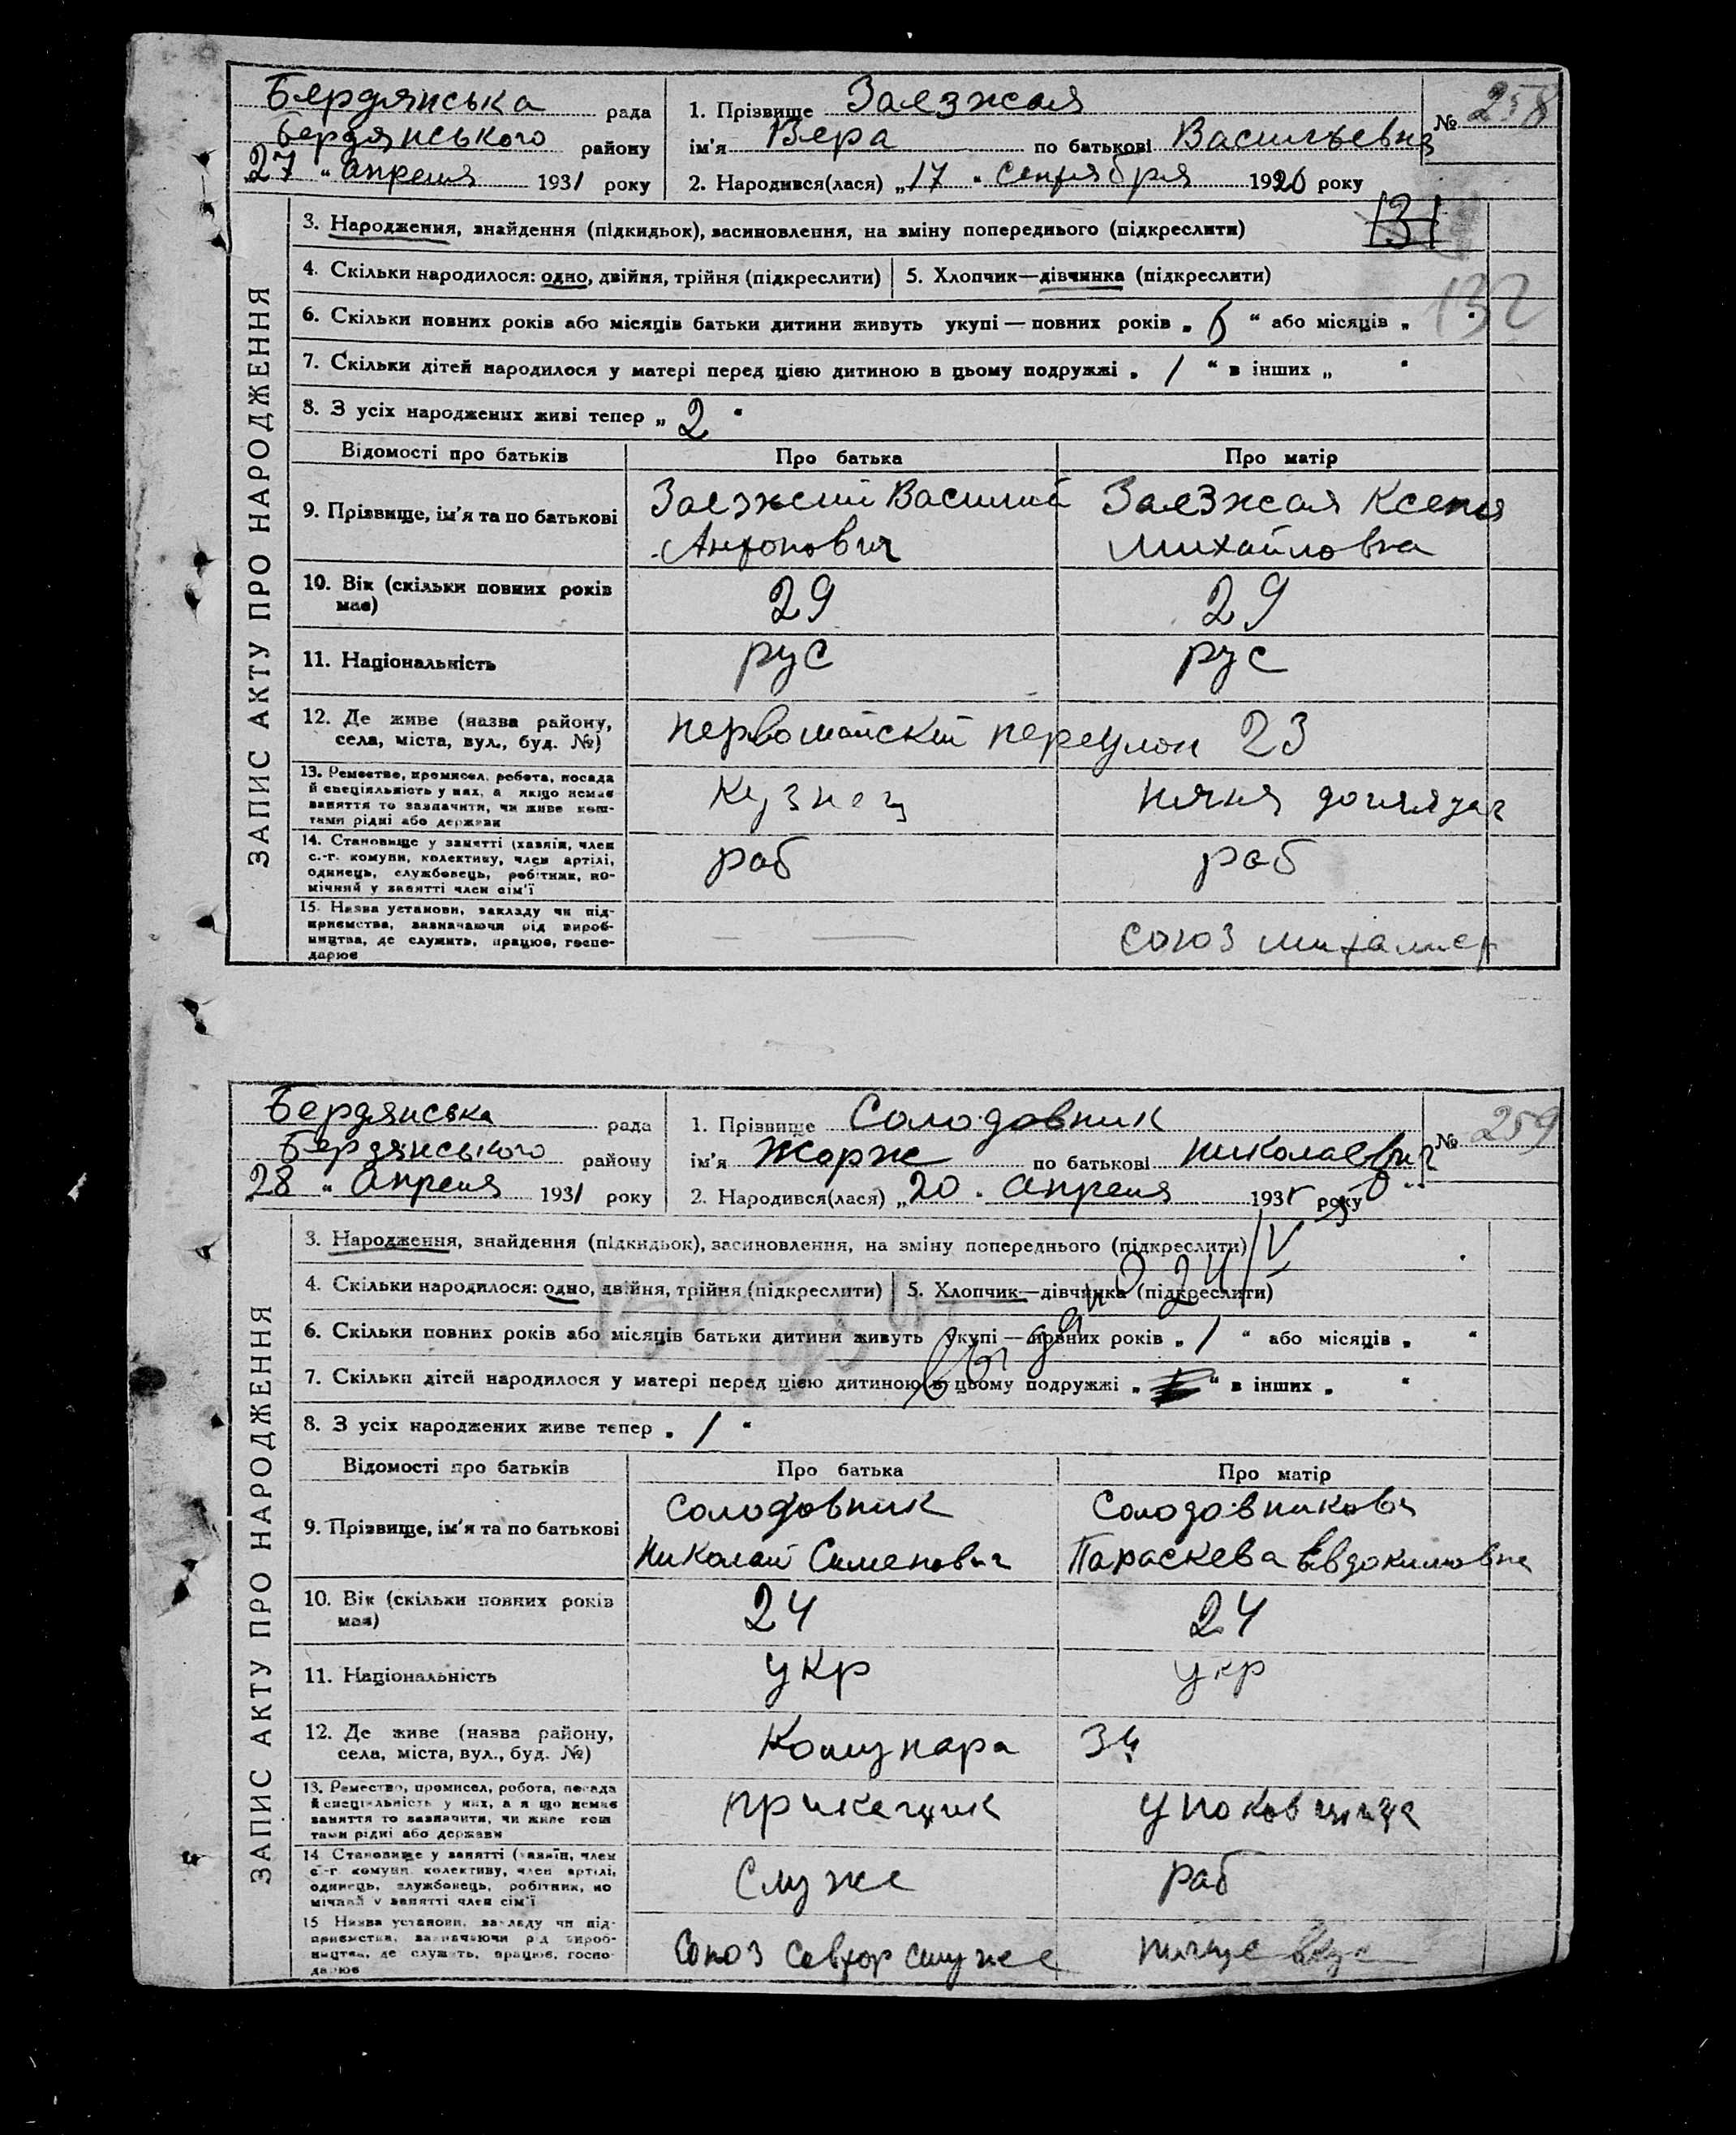 Бердянська рада
Бердянського району
„27 “ апреля 1931 року
1. Прізвище Заезжая
ім'я Вера по батькові Васильевна
2. Народився(лася) „17 “ сентября 1926 року
№ 258
ЗАПИС АКТУ ПРО НАРОДЖЕННЯ
3. Народження, знайдення (підкидьок), засиновлення, на зміну попереднього (підкреслити)
131
4. Скільки народилося: одно, двійня, трійня (підкреслити)
5. Хлопчик—дівчинка (підкреслити)
132
6. Скільки повних років або місяців батьки дитини живуть укупі — повних років „ “ або місяців „ “
7. Скільки дітей народилося у матері перед цією дитиною в цьому подружжі „ 1 “ в інших „ “
8. З усіх народжених живі тепер „ 2 “
Відомості про батьків
Про батька
Про матір
9. Прізвище, ім'я та по батькові
Заезжий Василий
Антонович
Заезжая Ксения
Михайловна
10. Вік (скільки повних років
має)
29
29
11. Національність
рус
рус
12. Де живе (назва району,
села, міста, вул., буд. №)
первомайский переулок 23
13. Ремество, промисел, робота, посада
й спеціяльність у них, а якщо немає
заняття то зазначити, чи живе кош-
тами рідні або держави
кузнец
няня
14. Становище у занятті (хазяїн, член
с.-г. комуни, колективу, член артілі,
одинець, службовець, робітник, по-
мічний у занятті член сім'ї
раб
раб
15. Назва установи, закладу чи під-
приємства, зазначаючи рід вироб-
ництва, де служить, працює, госпо-
дарює
— —
союз
Бердянська рада
Бердянського району
28 “ апреля 1931 року
1. Прізвище Солодовник
ім'я Жорж по батькові николаевич
2. Народився(лася) „20 “ апреля 193 року
№ 259
ЗАПИС АКТУ ПРО НАРОДЖЕННЯ
3. Народження, знайдення (підкидьок), засиновлення, на зміну попереднього (підкреслити)
4. Скільки народилося: одно, двійня, трійня (підкреслити)
5. Хлопчик—дівчинка (підкреслити)
выдано 24/V
6. Скільки повних років або місяців батьки дитини живуть укупі — повних років „ 1 “ або місяців „ “
7. Скільки дітей народилося у матері перед цією дитиною в цьому подружжі „ “ в інших „ “
8. З усіх народжених живе тепер „ 1 “
Відомості про батьків
Про батька
Про матір
9. Прізвище, ім'я та по батькові
Солодовник
Николай Сименович
Солодовникова
Параскева Евдокимовна
10. Вік (скільки повних років
має)
24
24
11. Національність
укр
укр
12. Де живе (назва району,
села, міста, вул., буд. №)
Комунара 34
13. Ремество, промисел, робота, посада
й спеціяльність у них, а якщо немає
заняття то зазначити, чи живе кош
тами рідні або держави
прикащик
14. Становище у занятті (хазяїн, член
с.-г. комуни, колективу, член артілі,
одинець, службовець, робітник, по
мічний у занятті член сім'ї
служе
раб
15 Назва установи, закладу чи під-
приємства, зазначаючи рід вироб-
ництва, де служить, працює, госпо-
дарює
союз совтор служе